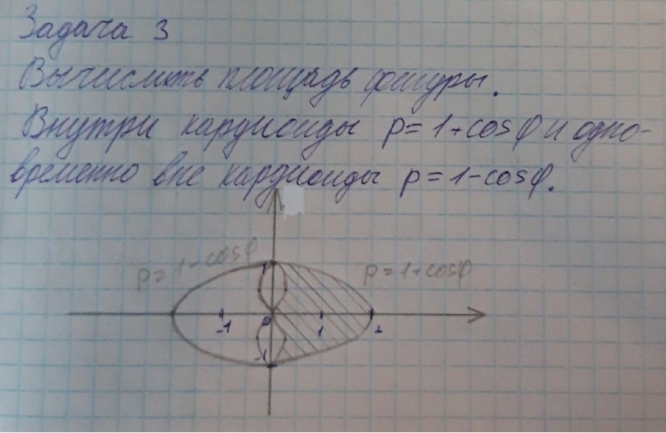 Задача 3
Вычислить площадь фигуры.
Внутри кардиоиды ρ=1+cosφ и одно-
временно вне кардиоиды ρ=1-cosφ.
ρ=1-cosφ
ρ=1+cosφ
1
-1
0
1
2
-1